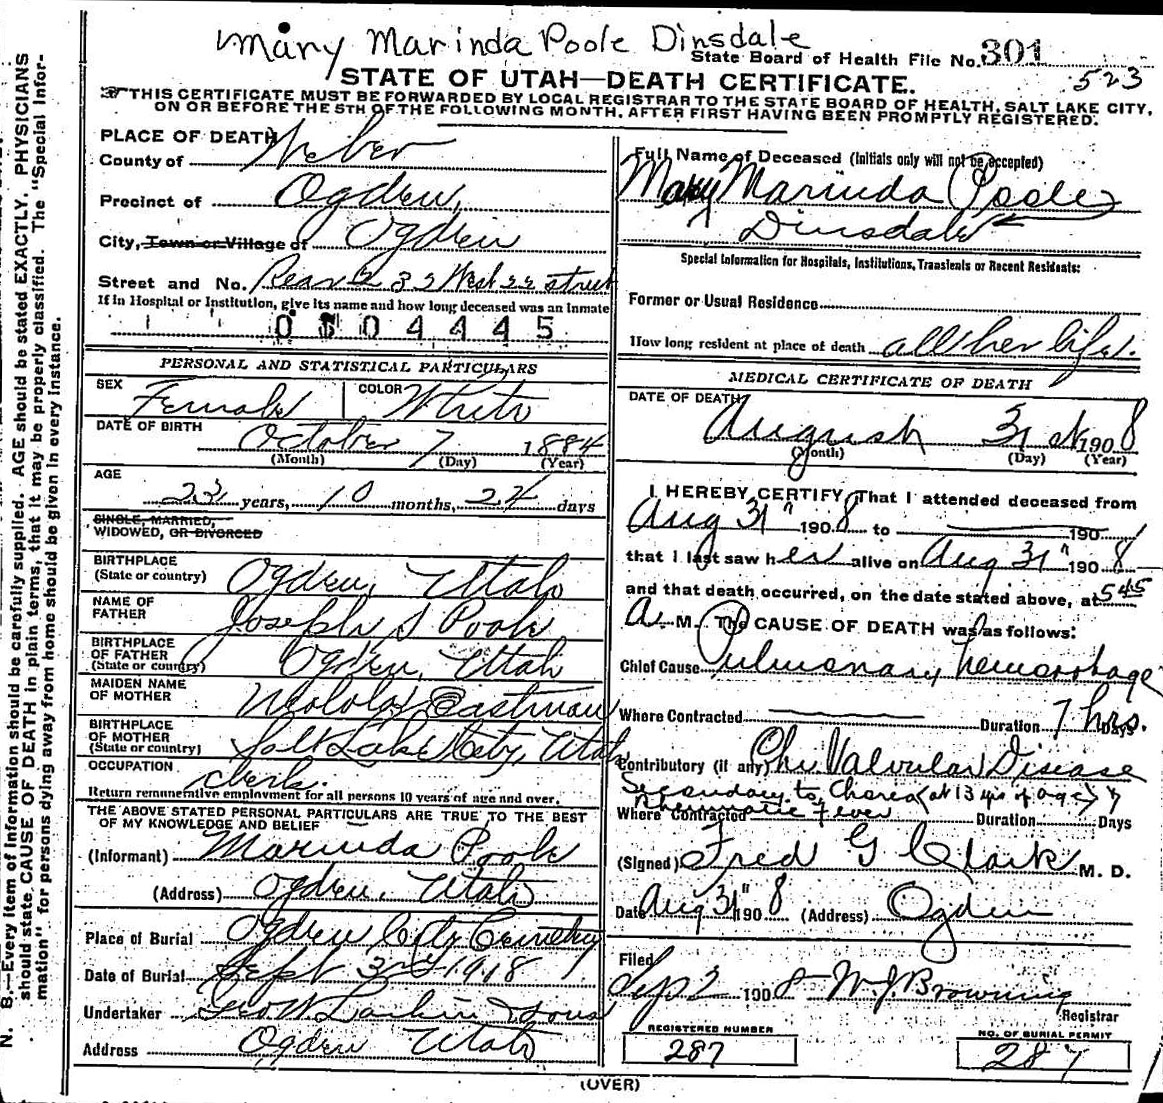 Mary Marinda Poole Dinsdale
State Board of Health File No. 301
523
STATE OF UTAH—DEATH CERTIFICATE.
☞THIS CERTIFICATE MUST BE FORWARDED BY LOCAL REGISTRAR TO THE STATE BOARD OF HEALTH, SALT LAKE CITY,
ON OR BEFORE THE 5TH OF THE FOLLOWING MONTH, AFTER FIRST HAVING BEEN PROMPTLY REGISTERED.
PLACE OF DEATH
County of Weber
Precinct of Ogden,
City, Town or Village of Ogden
Street and No. Rear 232 West 22 street
If in Hospital or Institution, give its name and how long deceased was an inmate
0 3 0 4 4 4 5
PERSONAL AND STATISTICAL PARTICULARS
SEX Female COLOR White
DATE OF BIRTH
October 7 1884
(Month) (Day) (Year)
AGE
23 years, 10 months, 24 days
SINGLE, MARRIED,
WIDOWED, OR DIVORCED
BIRTHPLACE
(State or country) Ogden, Utah
NAME OF
FATHER Joseph S Poole
BIRTHPLACE
OF FATHER
(State or country) Ogden, Utah
MAIDEN NAME
OF MOTHER Eastman
BIRTHPLACE
OF MOTHER
(State or country) Salt Lake City, Utah
OCCUPATION clerk.
Return remunerative employment for all persons 10 years of age and over.
THE ABOVE STATED PERSONAL PARTICULARS ARE TRUE TO THE BEST
OF MY KNOWLEDGE AND BELIEF
(Informant) Marinda Poole
(Address) Ogden, Utah
Place of Burial Ogden City Cemetery
Date of Burial Sept 3rd 1918
Undertaker Geo W Larkin & Sons
Address Ogden Utah
Full Name of Deceased (Initials only will not be accepted)
Mary Marinda Poole
Dinsdale
Special Information for Hospitals, Institutions, Transients or Recent Residents:
Former or Usual Residence
How long resident at place of death all her life.
MEDICAL CERTIFICATE OF DEATH
DATE OF DEATH
August 31st 1908
(Month) (Day) (Year)
I HEREBY CERTIFY, That I attended deceased from
Aug 31" 1908 to 190
that I last saw her alive on Aug 31" 1908
and that death occurred, on the date stated above, at 5 45
A. M. The CAUSE OF DEATH was as follows:
Chief Cause Pulmonary hemorrhage
Where Contracted Duration 7 hrs. Days
Contributory (if any) Chr. Valvular Disease
Secondary to Chorea (at 13 yrs of age) &
Rheumatic Fever
Where Contracted Duration Days
(Signed) Fred G Clark M. D.
Date Aug 31" 1908 (Address) Ogden
Filed
Sep 2 1908 W. J. Browning
Registrar
REGISTERED NUMBER
287
NO. OF BURIAL PERMIT
287
(OVER)
N. B.—Every item of information should be carefully supplied. AGE should be stated EXACTLY. PHYSICIANS
should state CAUSE OF DEATH in plain terms, that it may be properly classified. The "Special Infor-
mation" for persons dying away from home should be given in every instance.